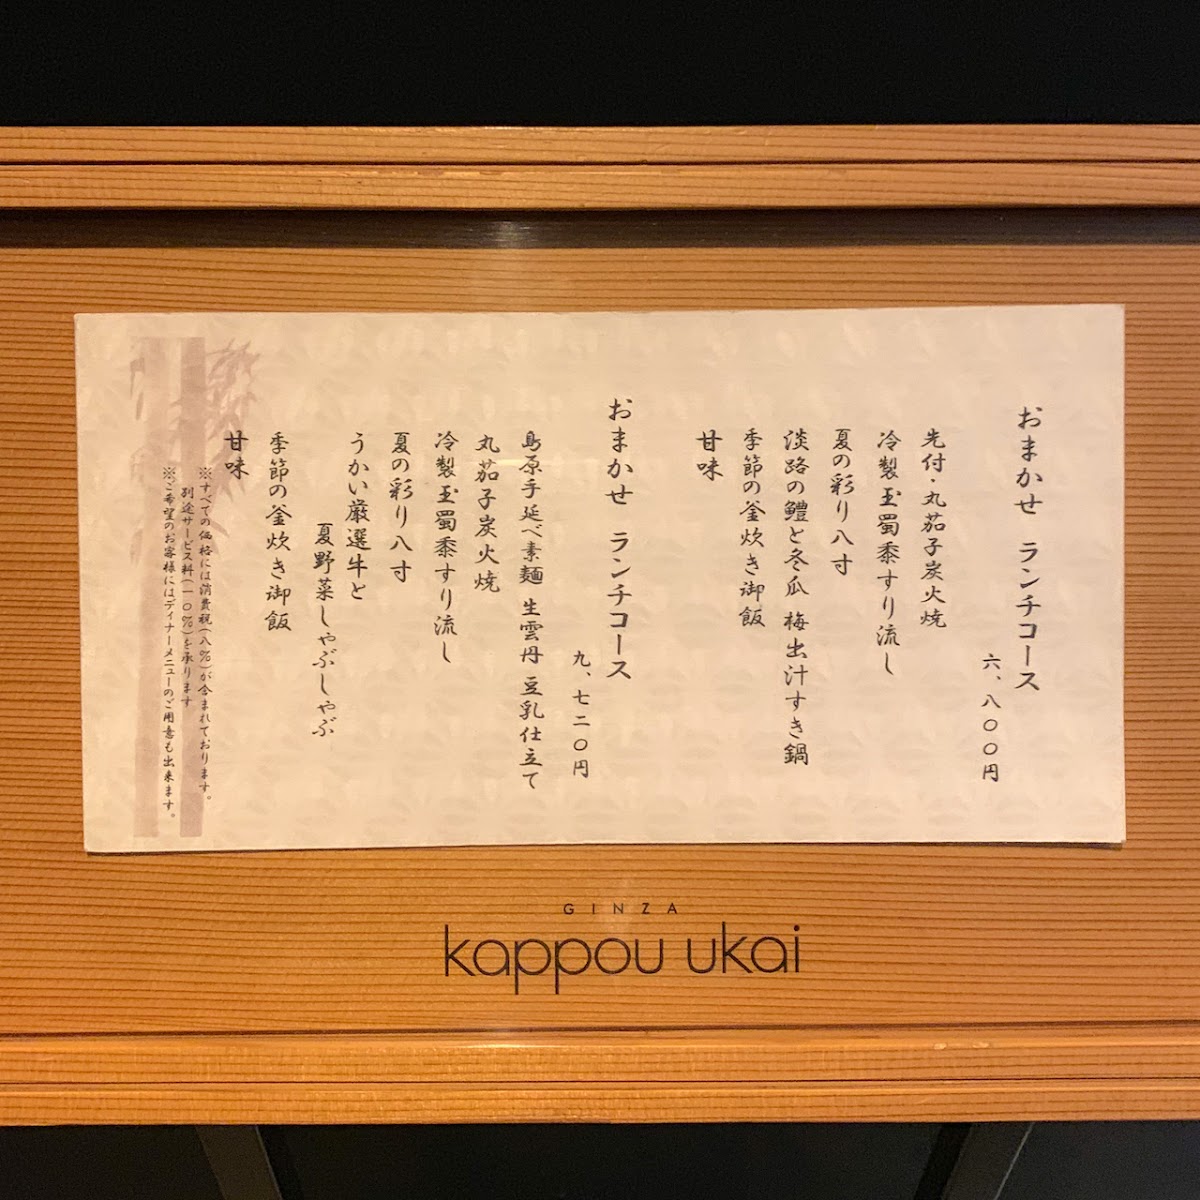 おまかせ ランチコース
六、八〇〇円
先付・丸茄子炭火焼
冷製玉蜀黍すり流し
夏の彩り八寸
淡路の鱧と冬瓜 梅出汁すき鍋
季節の釜炊き御飯
甘味
おまかせ ランチコース
九、七二〇円
島原手延べ素麺 生雲丹 豆乳仕立て
丸茄子炭火焼
冷製玉蜀黍すり流し
夏の彩り八寸
うかい厳選牛と
夏野菜しゃぶしゃぶ
季節の釜炊き御飯
甘味
※すべての価格には消費税(八%)が含まれております。
別途サービス料(一〇%)を承ります
※ご希望のお客様にはディナーメニューのご用意も出来ます。
GINZA
kappou ukai